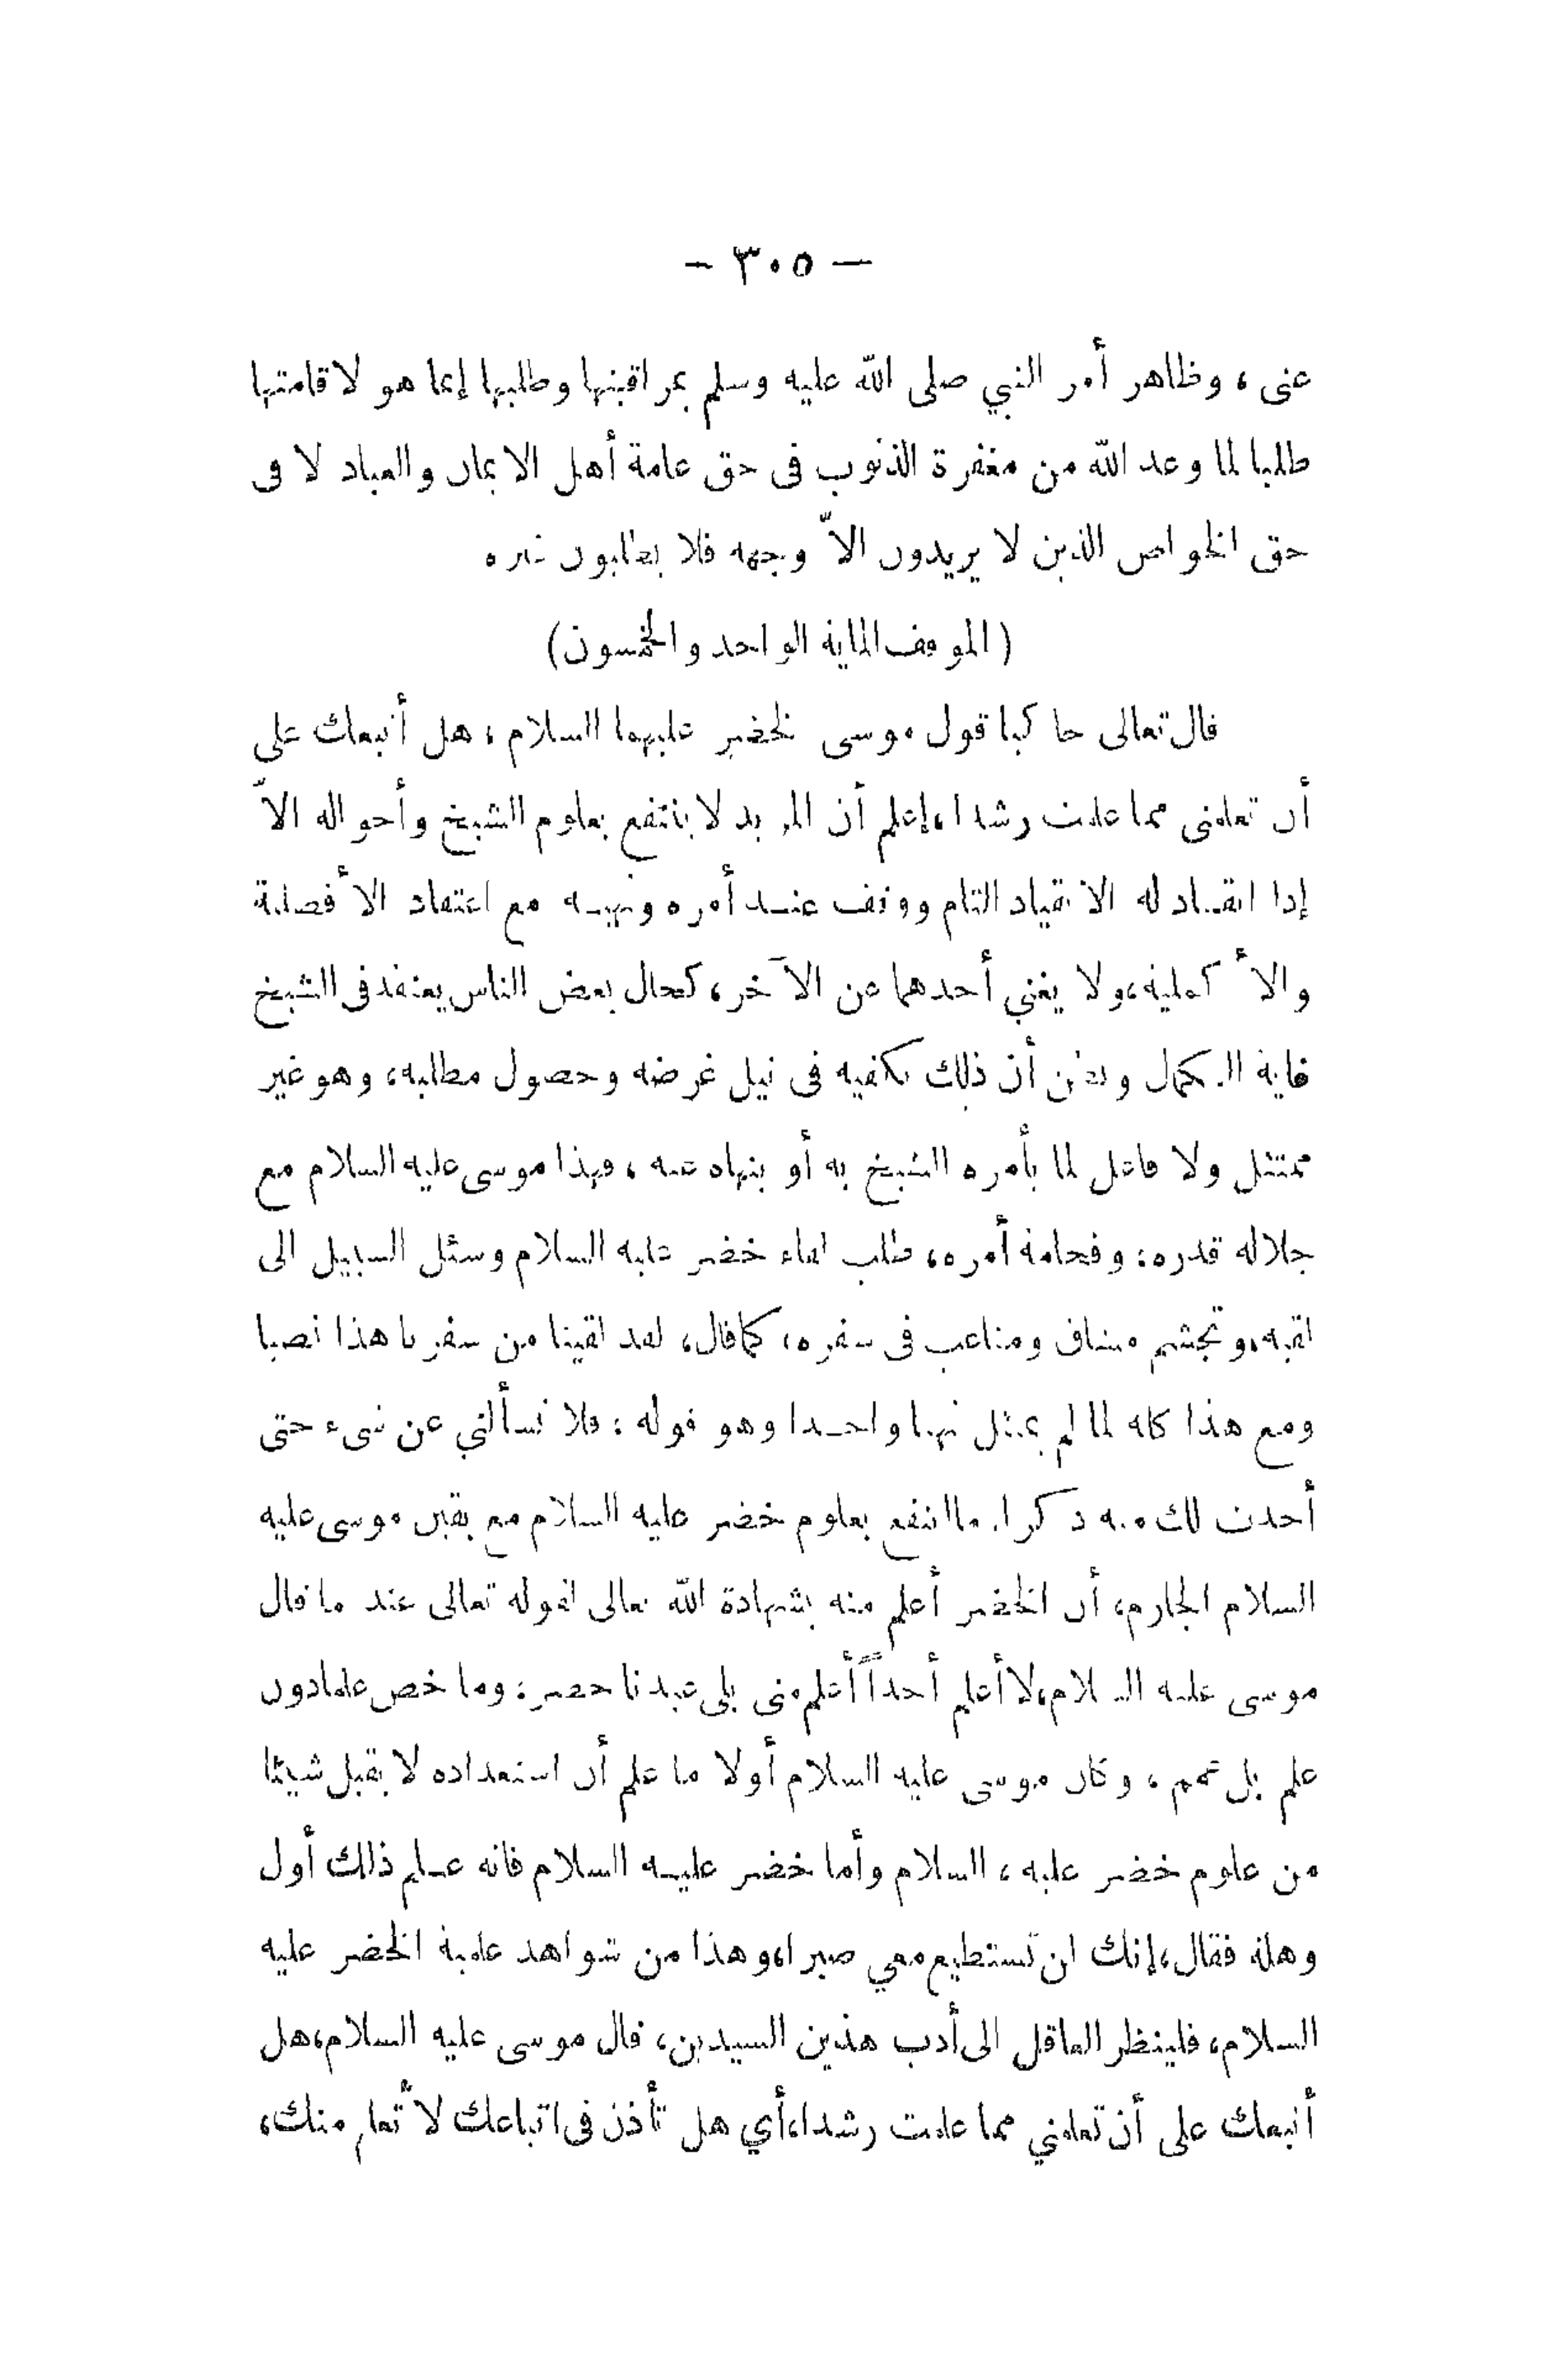 — ٣٠٥ —
عنى ، وظاهر أمر النبي صلى الله عليه وسلم بمراقبتها وطلبها إنما هو لاقامتها
طلبا لما وعد الله من مغفرة الذنوب فى حق عامة أهل الايمان والعباد لا فى
حق الخواص الذين لا يريدون الاّ وجهه فلا يطلبون غيره
(الموقف الماية الواحد والخمسون)
قال تعالى حاكيا قول موسى لخضر عليهما السلام ، هل أتبعك على
أن تعلمنى مما علمت رشدا، إعلم أن المريد لا ينتفع بعلوم الشيخ وأحواله الاّ
إذا انقـاد له الانقياد التام ووقف عنـد أمره ونهيـه مع اعتقاد الأفضلية
والأكملية، ولا يغني أحدهما عن الآخر، كحال بعض الناس يعتقد فى الشيخ
غاية الكمال ويظن أن ذلك يكفيه فى نيل غرضه وحصول مطلبه، وهو غير
ممتثل ولا فاعل لما يأمره الشيخ به أو ينهاه عنه ، فهذا موسى عليه السلام مع
جلاله قدره: وفخامة أمره، طلب لقاء خضر عليه السلام وسئل السبيل الى
لقيه، وتجشم مشاق ومتاعب فى سفره، كما قال، لقد لقينا من سفرنا هذا نصبا
ومع هذا كله لما لم يمتثل نهيا واحـدا وهو قوله : فلا تسألني عن شىء حتى
أحدث لك منه ذكرا. ما انتفع بعلوم خضر عليه السلام مع يقين موسى عليه
السلام الجازم، أن الخضر أعلم منه بشهادة الله تعالى لقوله تعالى عند ما قال
موسى عليه السلام، لا أعلم أحداً أعلم منى بلى عبدنا خضر: وما خص علما دون
علم بل عمم ، وكان موسى عليه السلام أولا ما علم أن استعداده لا يقبل شيئا
من علوم خضر عليه ، السلام وأما خضر عليـه السلام فانه عـلم ذلك أول
وهلة فقال، إنك لن تستطيع معي صبرا، وهذا من شواهد علمية الخضر عليه
السلام، فلينظر العاقل الى أدب هذين السيدين، قال موسى عليه السلام، هل
أتبعك على أن تعلمني مما علمت رشدا، أي هل تأذن فى اتباعك لأتعلم منك،